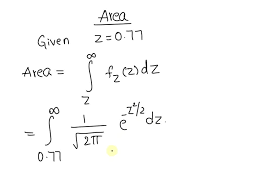 Area
Given z = 0.77
Area = ∫_z^∞ f_z(z) dz
= ∫_{0.77}^∞ 1/√(2π) e^{-z²/2} dz.